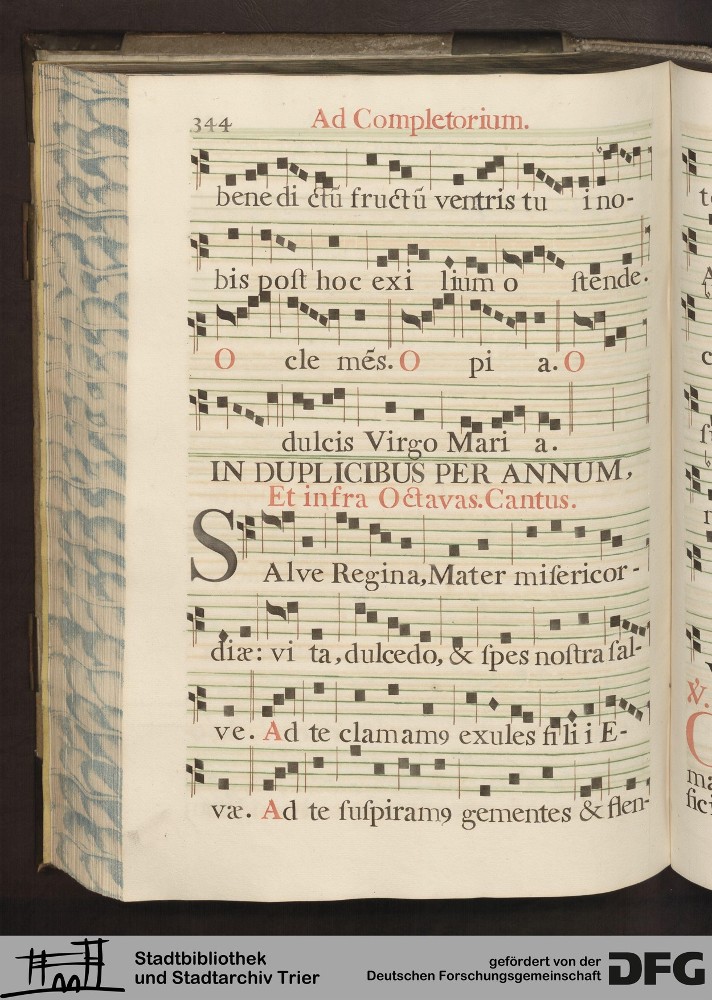 344 Ad Completorium.
bene di ctũ fructũ ventris tu i no-
bis poſt hoc exi lium o ſtende.
O cle mẽs. O pi a. O
dulcis Virgo Mari a.
IN DUPLICIBUS PER ANNUM,
Et infra Octavas. Cantus.
SAlve Regina, Mater miſericor-
diæ: vi ta, dulcedo, & ſpes noſtra ſal-
ve. Ad te clamamꝯ exules fi li i E-
væ. Ad te ſuſpiramꝯ gementes & flen-
Stadtbibliothek
und Stadtarchiv Trier
gefördert von der
Deutschen Forschungsgemeinschaft
DFG